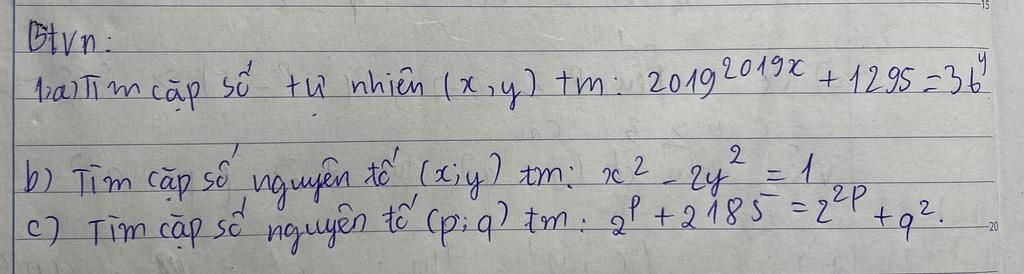 Btvn:
1.a) Tìm cặp số tự nhiên (x,y) tm: 2019^2019x + 1295 = 36^y
b) Tìm cặp số nguyên tố (x;y) tm: x^2 - 2y^2 = 1
c) Tìm cặp số nguyên tố (p;q) tm: 2^p + 2185 = 2^2p + q^2.
15
20